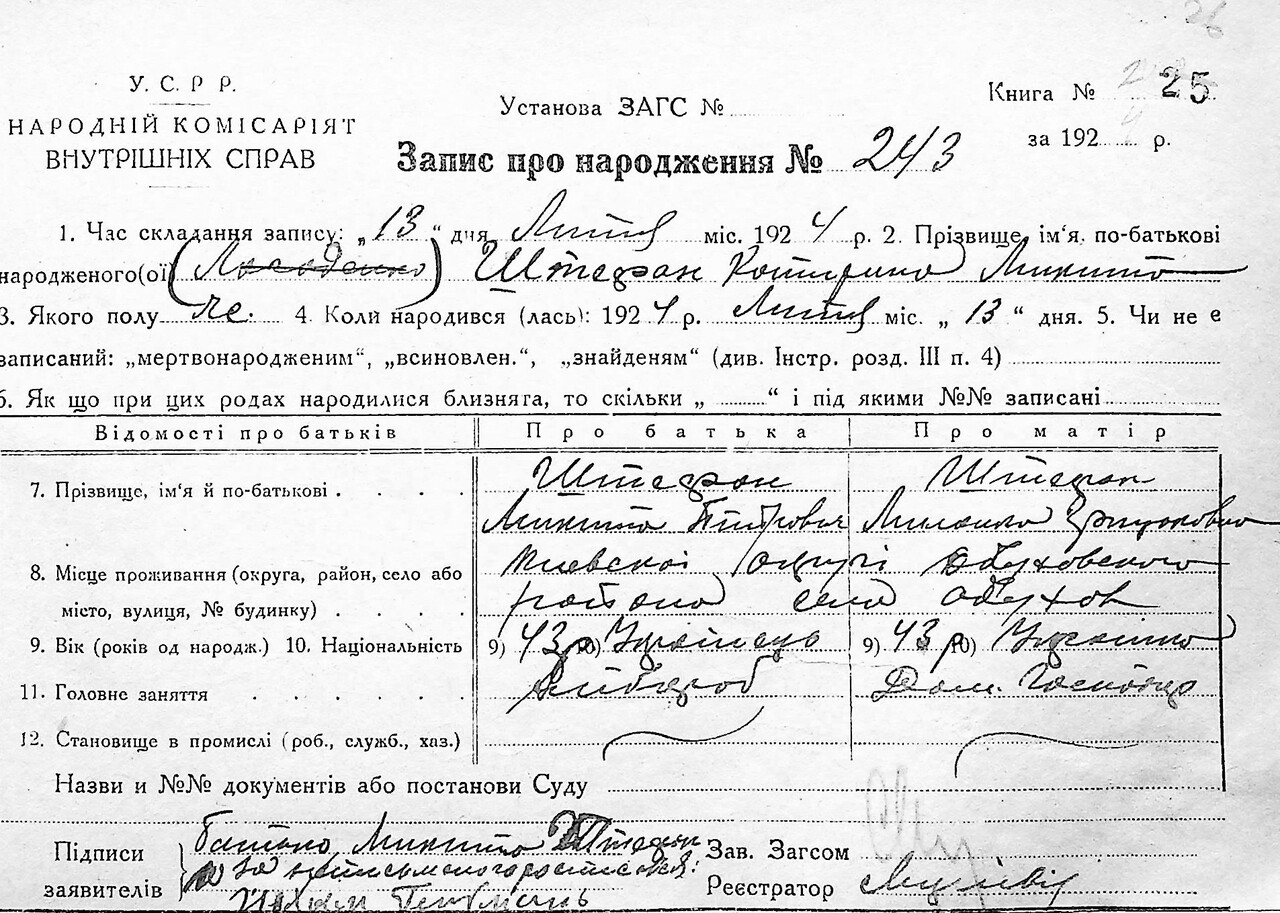 26
У. С. Р Р.
НАРОДНІЙ КОМІСАРІЯТ
ВНУТРІШНІХ СПРАВ
Установа ЗАГС №
Книга № 25
за 1924 р.
Запис про народження № 243
1. Час складання запису: „13“ дня Лютня міс. 1924 р. 2. Прізвище, ім‘я, по-батькові
народженого(ої) Штефан Микит
3. Якого полу же. 4. Коли народився (лась): 1924 р. Лютня міс. „ 13 “ дня. 5. Чи не є
записаний: „мертвонародженим“, „всиновлен.“, „знайденям“ (див. Інстр. розд. III п. 4)
6. Як що при цих родах народилися близняга, то скільки „ “ і під якими №№ записані
Відомості про батьків Про батька Про матір
7. Прізвище, ім‘я й по-батькові . . . . Штефан Штефан
Микита Петрович
8. Місце проживання (округа, район, село або Киевскої округі Обуховского
місто, вулиця, № будинку) . . . . района села Обухов
9. Вік (років од народж.) 10. Національність 9) 43 р 10) Українець 9) 43 р 10) Українка
11. Головне заняття . . . . . Хлібороб Дом. Господар
12. Становище в промислі (роб., служб., хаз.)
Назви и №№ документів або постанови Суду
Підписи
заявителів
батько Микита Штефан
за
Зав. Загсом
Реєстратор